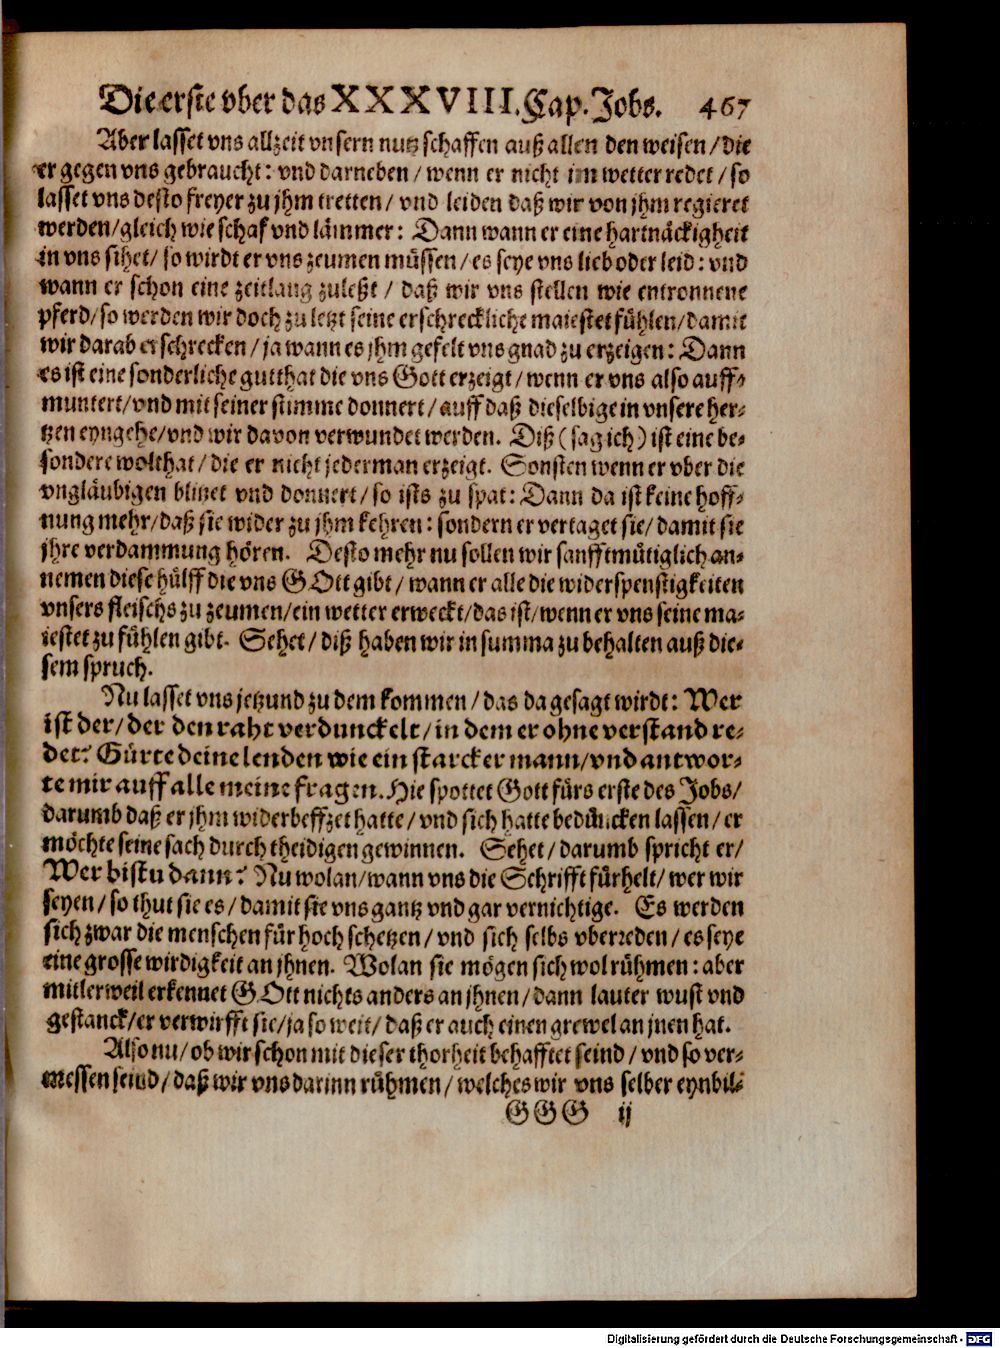 Die erste vber das XXXVIII. Cap. Jobs. 467
Aber lasset vns allzeit vnsern nutz schaffen auß allen den weisen / die
er gegen vns gebraucht: vnd darneben / wenn er nicht im wetter redet / so
lasset vns desto freyer zu jhm tretten / vnd leiden daß wir von jhm regieret
werden / gleich wie schaf vnd lämmer: Dann wann er eine hartnäckigheit
in vns sihet / so wirdt er vns zeumen müssen / es seye vns lieb oder leid: vnd
wann er schon eine zeitlang zuleßt / daß wir vns stellen wie entronnene
pferd / so werden wir doch zu letzt seine erschreckliche maiestet fühlen / damit
wir darab erschrecken / ja wann es jhm gefelt vns gnad zu erzeigen: Dann
es ist eine sonderliche gutthat die vns Gott erzeigt / wenn er vns also auff-
muntert / vnd mit seiner stimme donnert / auff daß dieselbige in vnsere her-
tzen eyngehe / vnd wir davon verwundet werden. Diß ( sag ich ) ist eine be-
sondere wolthat / die er nicht jederman erzeigt. Sonsten wenn er vber die
vngläubigen blitzet vnd donnert / so ists zu spat: Dann da ist keine hoff-
nung mehr / daß sie wider zu jhm kehren: sondern er vertaget sie / damit sie
jhre verdammung hören. Desto mehr nu sollen wir sanfftmütiglich an-
nemen diese hülff die vns GOtt gibt / wann er alle die widerspenstigkeiten
vnsers fleischs zu zeumen / ein wetter erweckt / das ist / wenn er vns seine ma-
iestet zu fühlen gibt. Sehet / diß haben wir in summa zu behalten auß die-
sem spruch.
Nu lasset vns jetzund zu dem kommen / das da gesagt wirdt: Wer
ist der / der den raht verdunckelt / in dem er ohne verstand re-
det? Gürte deine lenden wie ein starcker mann / vnd antwor-
te mir auff alle meine fragen. Hie spottet Gott fürs erste des Jobs /
darumb daß er jhm widerbeffzet hatte / vnd sich hatte bedüncken lassen / er
möchte seine sach durch theidigen gewinnen. Sehet / darumb spricht er /
Wer bistu dann? Nu wolan / wann vns die Schrifft fürhelt / wer wir
seyen / so thut sie es / damit sie vns gantz vnd gar vernichtige. Es werden
sich zwar die menschen für hoch schetzen / vnd sich selbs vberreden / es seye
eine grosse wirdigkeit an jhnen. Wolan sie mögen sich wol rühmen: aber
mitlerweil erkennet GOtt nichts anders an jhnen / dann lauter wust vnd
gestanck / er verwirfft sie / ja so weit / daß er auch einen grewel an jnen hat.
Also nu / ob wir schon mit dieser thorheit behafftet seind / vnd so ver-
messen seind / daß wir vns darinn rühmen / welches wir vns selber eynbil-
GGG ij
Digitalisierung gefördert durch die Deutsche Forschungsgemeinschaft - DFG